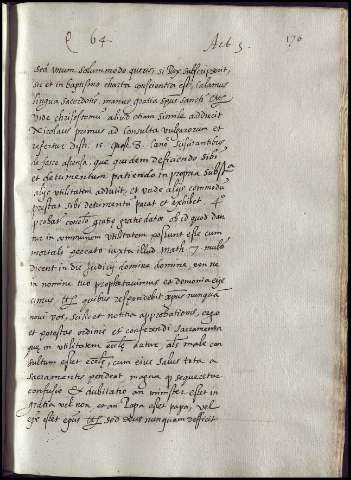 Q 64. Art. 5. 176
sed unum solummodo queris, si Rex subscripserit,
sic et in baptismo charta conscientia est, calamus
lingua sacerdotis, manus gratia spus sancti
vide chrisostomus aliud etiam simile adducit
Nicolaus primus ad consulta vulgarorum et
refertur dist. 15. 8.
et detrimentum patiendo in propria
alijs utilitatem adducit, et unde alijs commodum
prestat sibi detrimentum parat et exhibet
probat gratie gratis date ob id quod dan
tur in omnium utilitatem possunt esse cum
mortali peccato iuxta illud Math 7 multi
dicent in die Judicij domine domine, non ne
in nomine tuo prophetavimus et demonia eje
cimus quibus respondebit xpus nunquam
novi vos, scilicet notitia approbationis, ergo
et potestas ordinis et conferendi sacramenta
que in utilitatem datur, alias male con
sultum esset, cum eius salus tota a
sacramentis pendeat magna sequeretur
confusio et dubitatio an minister esset in
gratia vel non et an Papa esset papa, vel
epus esset epus sed deus nunquam defficit